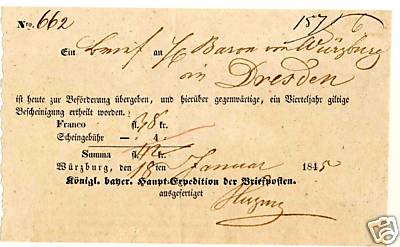 Nro. 662
157/6
Ein Brief an H Baron von Würzburg
in Dresden
ist heute zur Beförderung übergeben, und hierüber gegenwärtige, ein Vierteljahr giltige
Bescheinigung ertheilt worden.
Franco fl. 38 kr.
Scheingebühr — 4
Summa fl. 42 kr.
Würzburg, den 18ten Januar 1845
Königl. bayer. Haupt-Expedition der Briefposten.
ausgefertigt